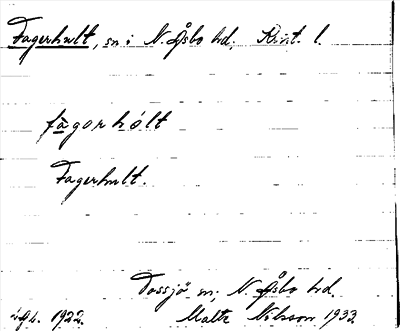 Fagerhult, sn i N. Åsbo hd, Krist. l.
fàgorhólt
Fagerhult.
Tossjö sn, N. Åsbo hd.
1922. Malte Nilsson 1933.